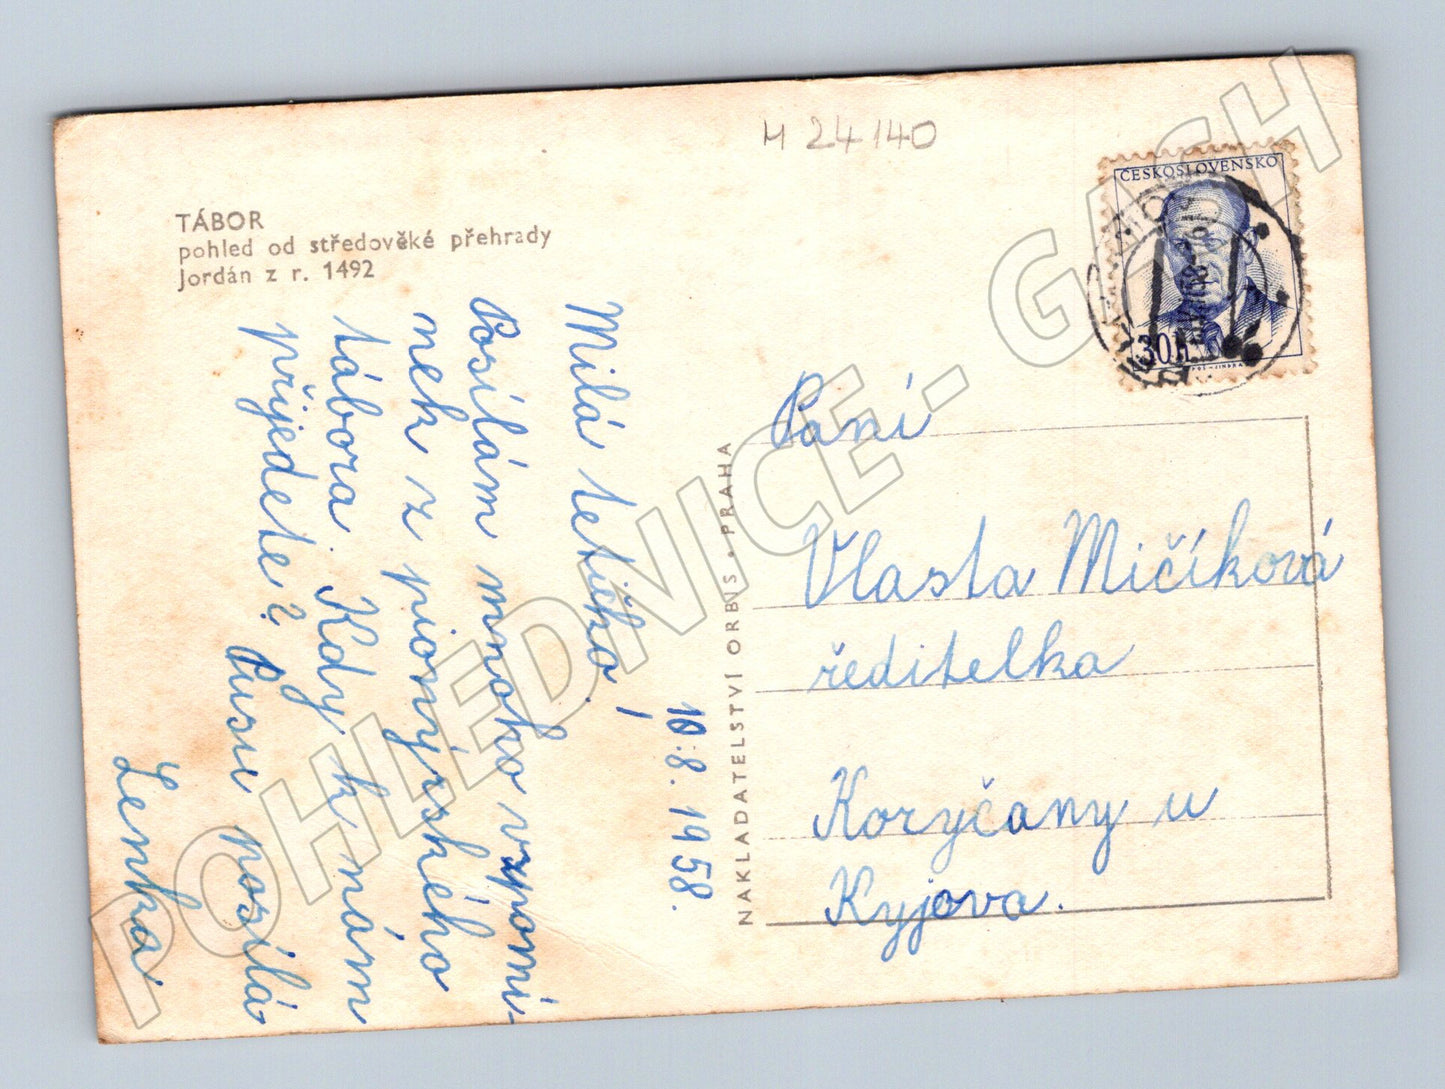 M 24140
TÁBOR
pohled od středověké přehrady
Jordán z r. 1492
10.8. 1958.
Milá tetičko
Posílám mnoho vzpomí-
nek z pionýrského
tábora. Kdy k nám
přijedete? Pusu posílá
Lenka.
NAKLADATELSTVÍ ORBIS • PRAHA
ČESKOSLOVENSKO
30h
Paní
Vlasta Mičíková
ředitelka
Koryčany u
Kyjova.
POHLEDNICE - GASH